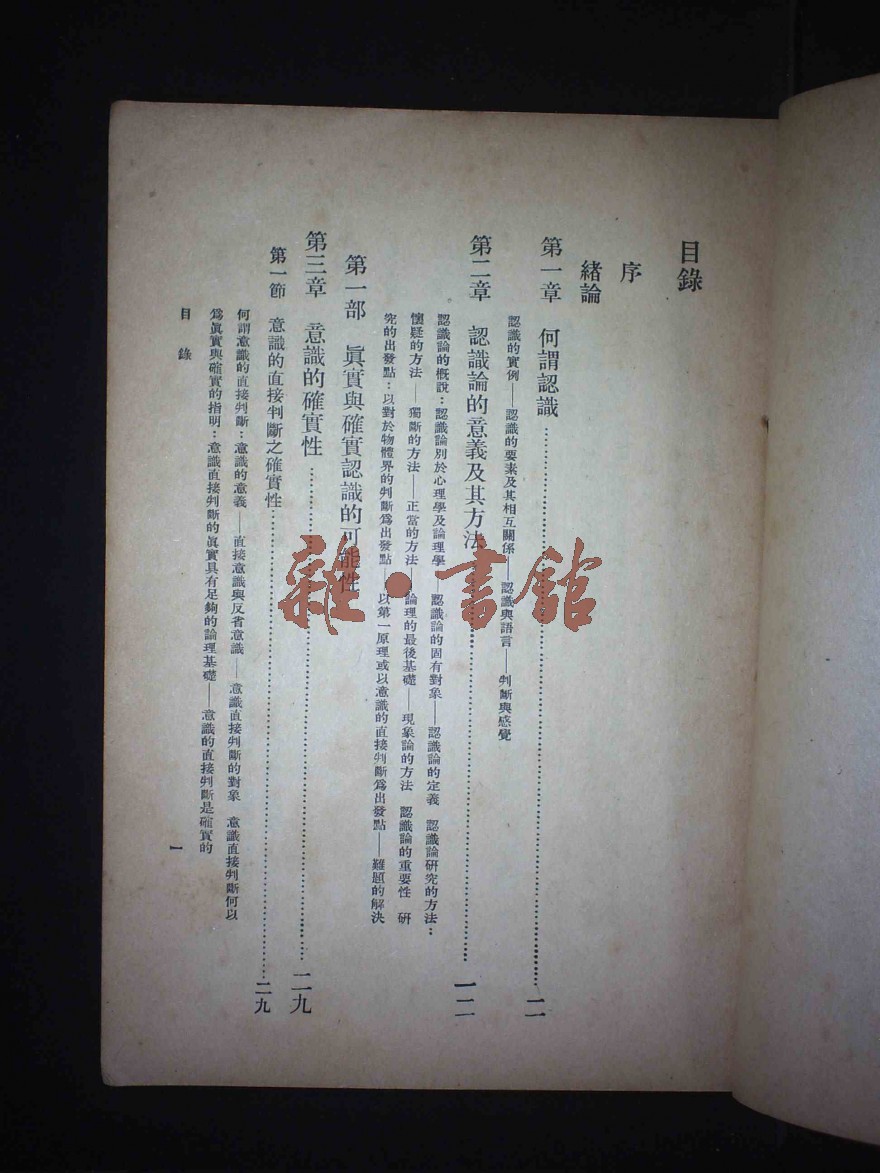 目錄
序
緒論
第一章　何謂認識………二
認識的實例——認識的要素及其相互關係——認識與語言——判斷與感覺
第二章　認識論的意義及其方法………一二
認識論的概說：認識論別於心理學及論理學　認識論的固有對象——認識論的定義　認識論研究的方法：
懷疑的方法——獨斷的方法——正當的方法　論理的最後基礎——現象論的方法　認識論的重要性　研
究的出發點：以對於物體界的判斷爲出發點　以第一原理或以意識的直接判斷爲出發點——難題的解決
第一部　眞實與確實認識的可能性
第三章　意識的確實性………二九
第一節　意識的直接判斷之確實性………二九
何謂意識的直接判斷：意識的意義——直接意識與反省意識——意識直接判斷的對象　意識直接判斷何以
爲眞實與確實的指明：意識直接判斷的眞實具有足夠的論理基礎——意識的直接判斷是確實的
目錄
一
雜·書館